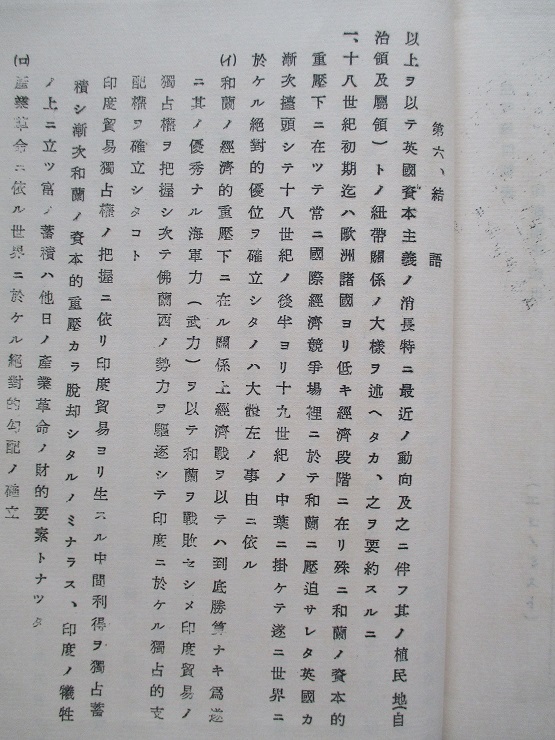 第六、結語
以上ヲ以テ英國資本主義ノ消長特ニ最近ノ動向及之ニ伴フ其ノ植民地(自
治領及屬領)トノ紐帶關係ノ大樣ヲ述ヘタカ、之ヲ要約スルニ
一、十八世紀初期迄ハ歐洲諸國ヨリ低キ經濟段階ニ在リ殊ニ和蘭ノ資本的
重壓下ニ在ツテ常ニ國際經濟競爭場裡ニ於テ和蘭ニ壓迫サレタ英國カ
漸次擡頭シテ十八世紀ノ後半ヨリ十九世紀ノ中葉ニ掛ケテ遂ニ世界ニ
於ケル絕對的優位ヲ確立シタノハ大體左ノ事由ニ依ル
(イ)和蘭ノ經濟的重壓下ニ在ル關係上經濟戰ヲ以テハ到底勝算ナキ爲遂
ニ其ノ優秀ナル海軍力(武力)ヲ以テ和蘭ヲ戰敗セシメ印度貿易ノ
獨占權ヲ把握シ次テ佛蘭西ノ勢力ヲ驅逐シテ印度ニ於ケル獨占的支
配權ヲ確立シタコト
印度貿易獨占權ノ把握ニ依リ印度貿易ヨリ生スル中間利得ヲ獨占蓄
積シ漸次和蘭ノ資本的重壓カラ脫却シタルノミナラス、印度ノ犧牲
ノ上ニ立ツ富ノ蓄積ハ他日ノ產業革命ノ財的要素トナツタ
(ロ)產業革命ニ依ル世界ニ於ケル絕對的勾配ノ確立